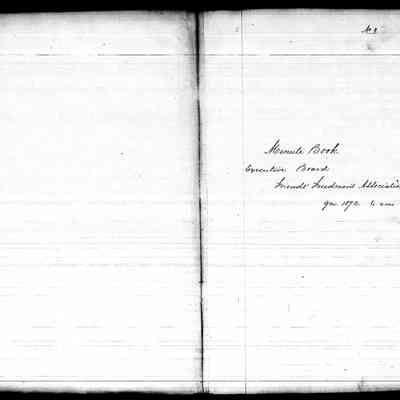 No 2
Minute Book
Executive Board
Friends' Freedmen's Associatio
1872